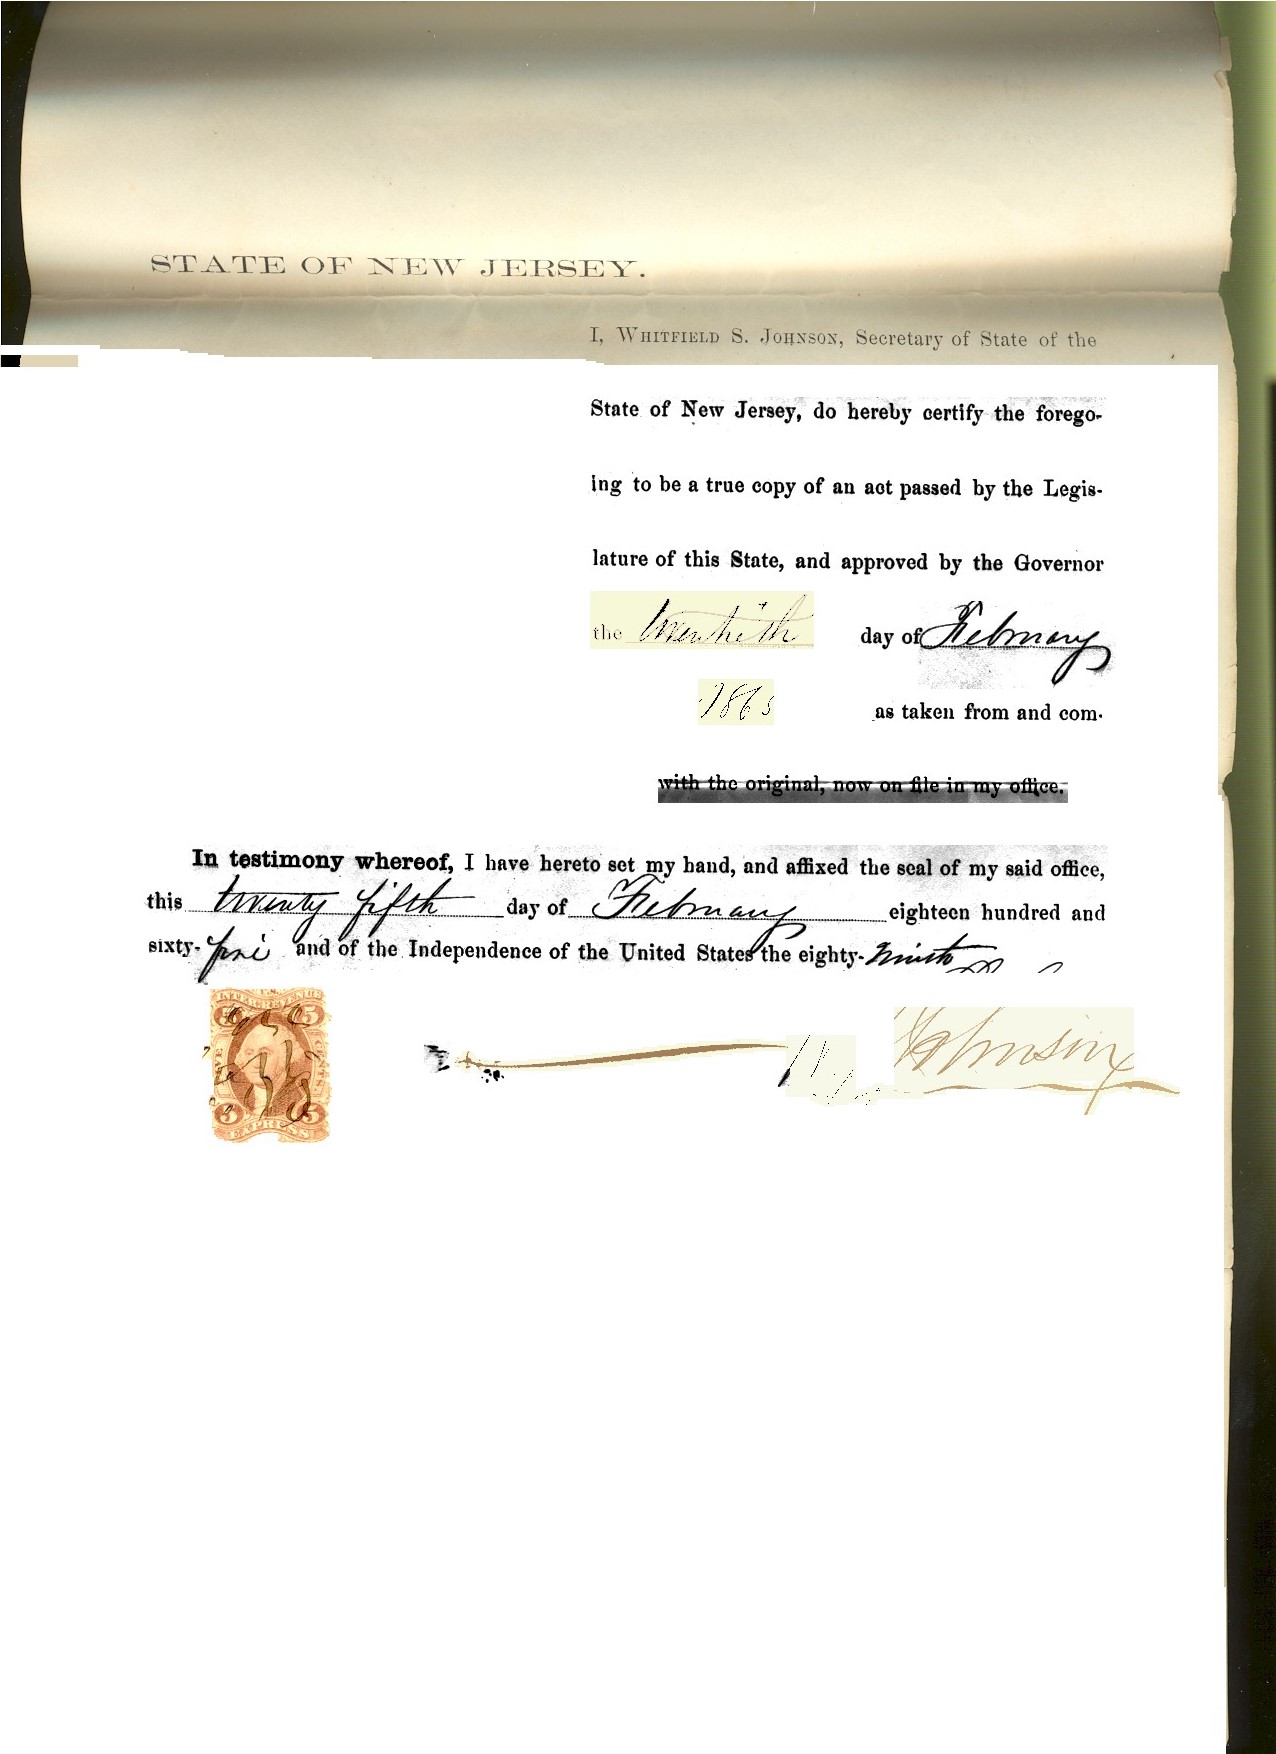 STATE OF NEW JERSEY.
I, WHITFIELD S. JOHNSON, Secretary of State of the
State of New Jersey, do hereby certify the forego-
ing to be a true copy of an act passed by the Legis-
lature of this State, and approved by the Governor
the twentieth day of February
1865 as taken from and com-
with the original, now on file in my office.
In testimony whereof, I have hereto set my hand, and affixed the seal of my said office,
this twenty fifth day of February eighteen hundred and
sixty-five and of the Independence of the United States the eighty-ninth
U.S.
INTER. REVENUE
5 5
FIVE CENTS
5 5
EXPRESS
Johnson